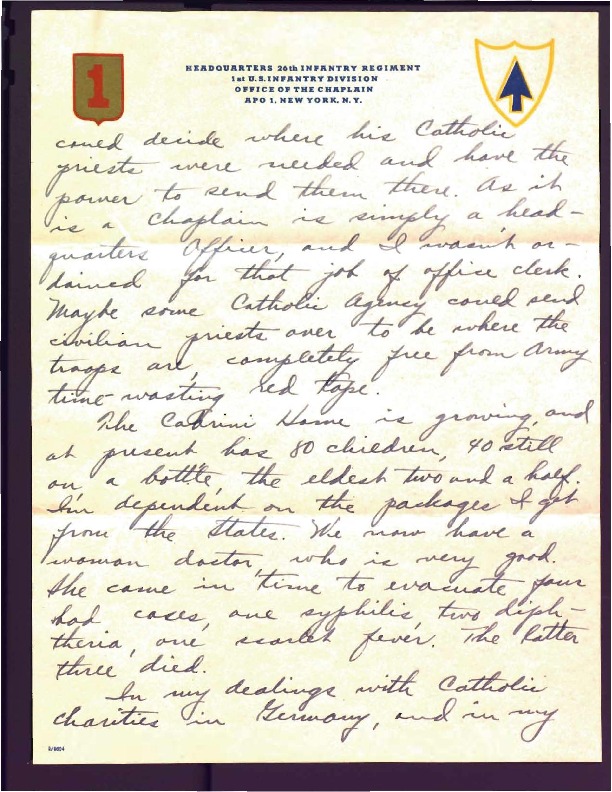 1
HEADQUARTERS 26th INFANTRY REGIMENT
1st U.S. INFANTRY DIVISION
OFFICE OF THE CHAPLAIN
APO 1, NEW YORK, N.Y.
could decide where his Catholic
priests were needed and have the
power to send them there. As it
is a Chaplain is simply a head-
quarters Officer, and I wasn't or-
dained for that job of office clerk.
Maybe some Catholic Agency could send
civilian priests over to be where the
troops are, completely free from Army
time-wasting red tape.
The Cabrini Home is growing, and
at present has 80 children, 40 still
on a bottle, the eldest two and a half.
I'm dependent on the packages I get
from the States. We now have a
woman doctor, who is very good.
She came in time to evacuate four
bad cases, one syphilis, two diph-
theria, one scarlet fever. The latter
three died.
In my dealings with Catholic
charities in Germany, and in my